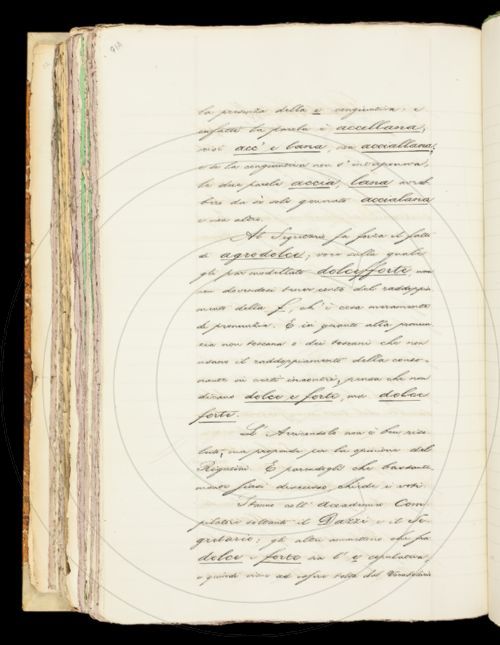 la presenza della e congiuntiva: e
infatti la parola è accellana,
cioè acc' e lana, non acciallana;
e se la congiuntiva non v'interponeva,
le due parole accia, lana avreb
bero da sè sole generato accialana
e non altro.
Al Segretario fa forza il fatto
di agrodolce, voce sulla quale
gli par modellato dolcefforte, non
dovendosi tener conto del raddoppia
mento della f, ch' è cosa meramente
di pronunzia. E in quanto alla pronun
zia non toscana e dei toscani che non
usano il raddoppiamento della conso-
nante in certi incontri, pensa che non
dicano dolce e forte, ma dolce
forte.
L' Arciconsolo non è ben riso
luto, ma propende per la opinione del
Rigutini. E parendogli che bastante-
mente siasi discusso, chiede i voti.
Stanno coll' Accademico Com
pilatore soltanto il Dazzi e il Se
gretario: gli altri ammettono che fra
dolce e forte sia l' e copulativa,
e quindi viene ad esser tolto dal Vocabolario